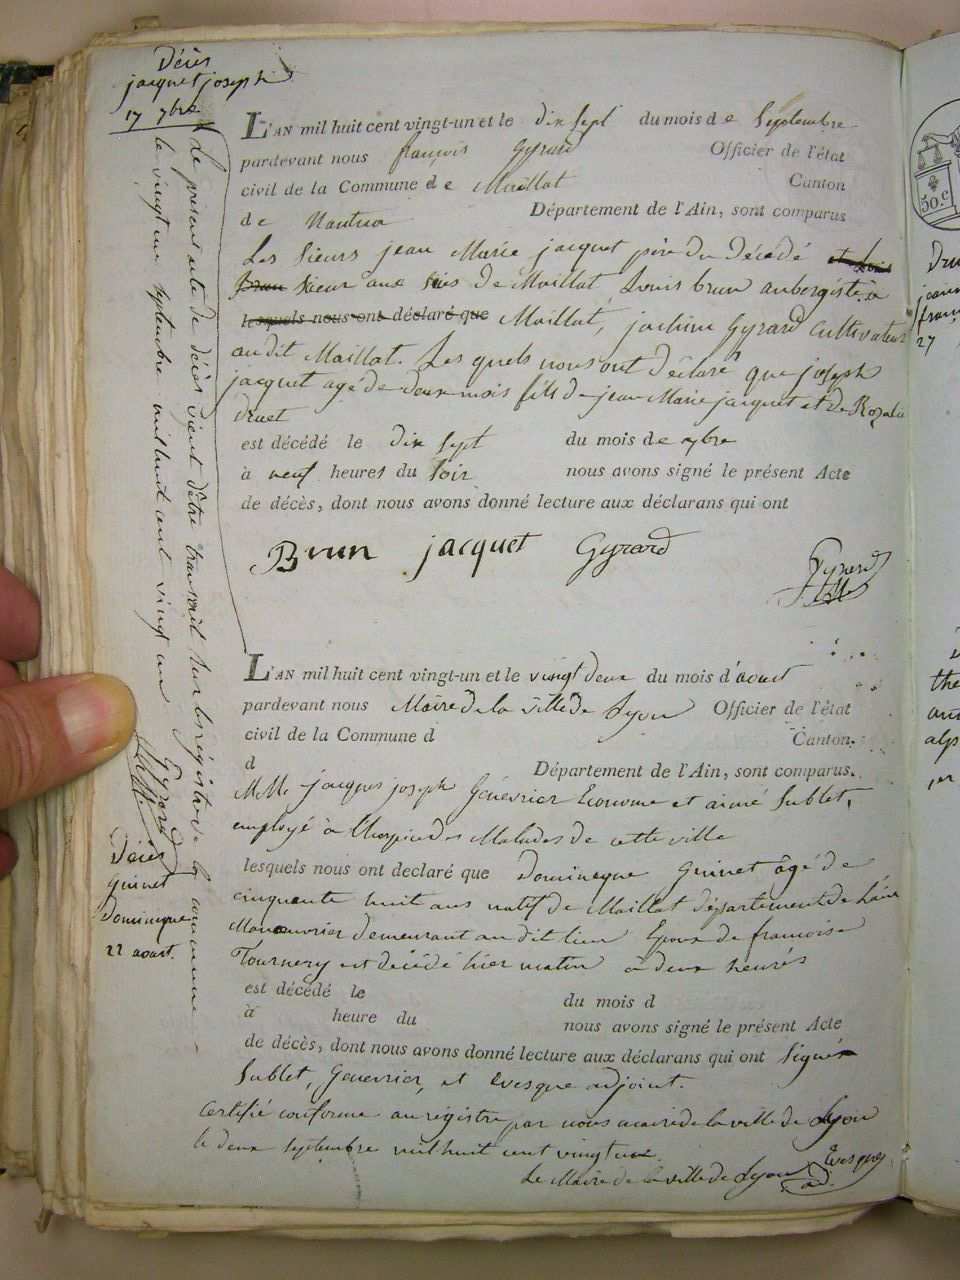 Décès
jacquet joseph
17 7bre
L'AN mil huit cent vingt-un et le dix sept du mois de Septembre
pardevant nous françois Gyrard Officier de l'état
civil de la Commune de Maillat Canton
de Nantua Département de l'Ain, sont comparus
Les Sieurs jean Marie jacquet père du Décédé et Louis
Brun Sieur aux de Maillat Louis brun aubergiste à
lesquels nous ont déclaré que Maillat, joachim Gyrard cultivateur
audit Maillat. Les quels nous ont déclaré que joseph
jacquet agé de deux mois fils de jean Marie jacquet et de Rozalie
druet
est décédé le dix sept du mois de 7bre
à neuf heures du soir nous avons signé le présent Acte
de décès, dont nous avons donné lecture aux déclarans qui ont
Brun jacquet Gyrard
Gyrard
Le présent acte de décès vient d'être transcrit sur les régistre de la commune
le vingt une septembre mil huit cent vingt un
Gyrard
L'AN mil huit cent vingt-un et le vingt deux du mois d'aoust
pardevant nous Maire de la ville de Lyon Officier de l'état
civil de la Commune d Canton
d Département de l'Ain, sont comparus
M.Mr jacques joseph Genevrier Econome et aimé Sublet,
employé à l'hospice des Malades de cette ville
lesquels nous ont declaré que Dominique Guinet âgé de
cinquante huit ans natif de Maillat département de l'ain
Manouvrier demeurant au dit lieu Epoux de françoise
Tournery est décédé hier matin à deux heures
est décédé le du mois d
à heure du nous avons signé le présent Acte
de décès, dont nous avons donné lecture aux déclarans qui ont Signés
Sublet, Genevrier, et Evesque adjoint.
Certifié conforme au régistre par nous maire de la ville de Lyon
le deux septembre mil huit cent vingt un.
Le Maire de la ville de Lyon Evesque
ad.
Décès
Guinet
Dominique
22 aoust.
50.c
Dru
jeann
fran
27
the
alp